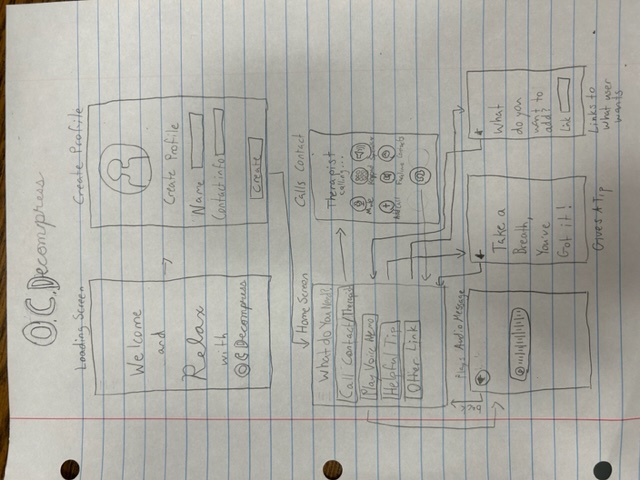 O.C.Decompress
Loading Screen
Create Profile
Welcome
and
Relax
with
OCDecompress
Create Profile
Name
Contact info
Create
Home Screen
What do You Need?
Call Contact/Therapist
Play Voice Memo
Helpful Tip
Other Link
Calls Contact
Therapist
calling...
Mute
Keypad
Speaker
Add Call
Facetime
Contacts
back
Plays Audio Message
Take a
Breath,
You've
Got it!
Gives A Tip
What
do you
want to
add?
Link
Links to
what user
wants